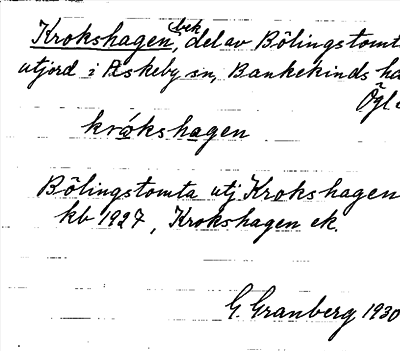 Krokshagen, bek del av Bölingstomta
utjord i Askeby sn, Bankekinds hd
Ögl.
kråkshagen
Bölingstomta utj Krokshagen
kb 1927, Krokshagen ek.
G. Granberg 1930